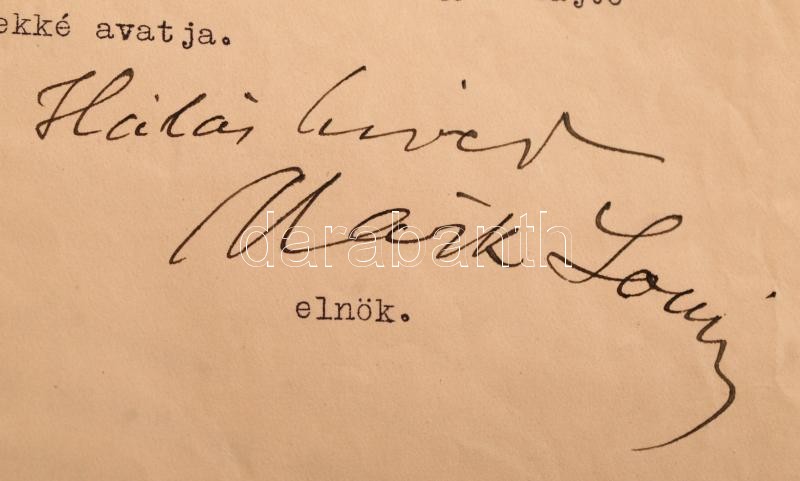 ekké avatja.
Hálás híved
Márk Lajos
darabanth
elnök.